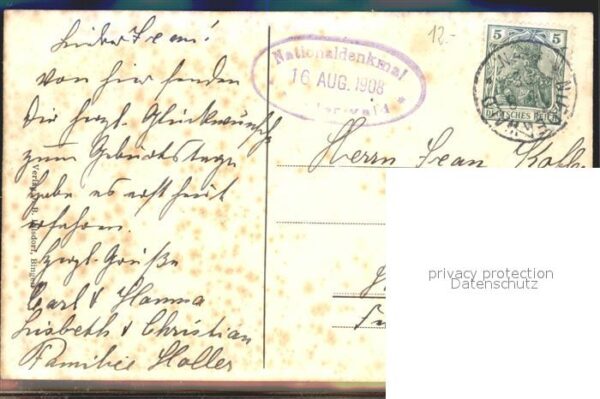 Lieber Jean!
von hier senden
Dir herzl. Glückwunsch
zum Geburtstage
habe es erst heut
erfahren.
Herzl. Grüße
Carl & Hanna
Lisbeth & Christian
Familie Holler
12.-
Nationaldenkmal
16 AUG. 1908
5 5
DEUTSCHES REICH
Herrn Jean
Verlag
Bingen
privacy protection
Datenschutz